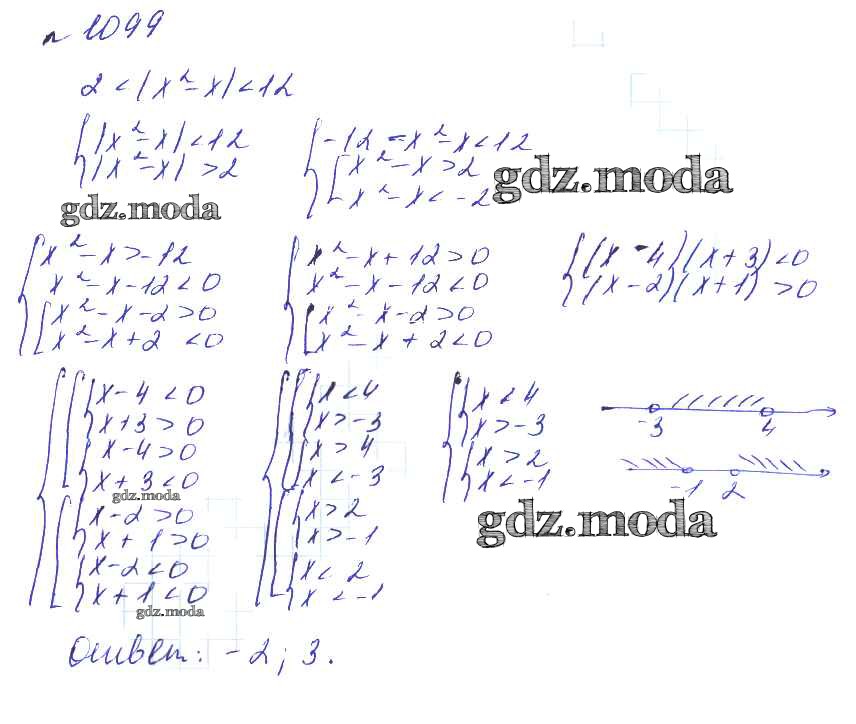 n 1099
2 < |x² - x| < 12
{ |x² - x| < 12
{ |x² - x| > 2
{ -12 = x² - x < 12
{ [ x² - x > 2
{ [ x² - x < -2
gdz.moda
gdz.moda
{ x² - x > -12
{ x² - x - 12 < 0
{ [ x² - x - 2 > 0
{ [ x² - x + 2 < 0
{ x² - x + 12 > 0
{ x² - x - 12 < 0
{ [ x² - x - 2 > 0
{ [ x² - x + 2 < 0
{ (x - 4)(x + 3) < 0
{ (x - 2)(x + 1) > 0
{ [ { x - 4 < 0
{ [ { x + 3 > 0
{ [ { x - 4 > 0
{ [ { x + 3 < 0
gdz.moda
{ [ { x - 2 > 0
{ [ { x + 1 > 0
{ [ { x - 2 < 0
{ [ { x + 1 < 0
gdz.moda
{ [ { x < 4
{ [ { x > -3
{ [ { x > 4
{ [ { x < -3
{ [ { x > 2
{ [ { x > -1
{ [ { x < 2
{ [ { x < -1
{ { x < 4
{ { x > -3
{ [ x > 2
{ [ x < -1
-3 4
-1 2
gdz.moda
Ответ: -2; 3.